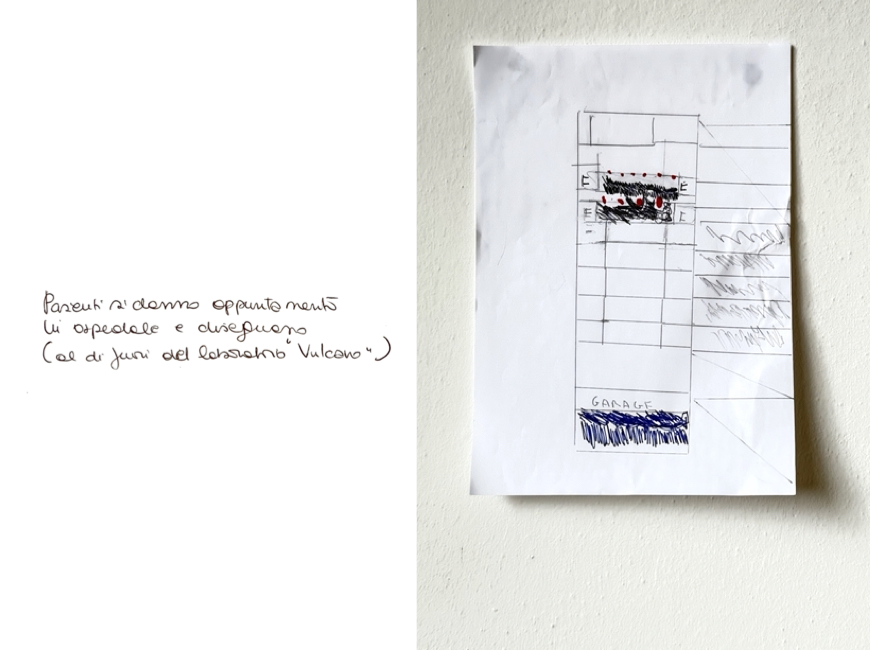 Pazienti si danno appuntamento
in ospedale e disegnano
(al di fuori del laboratorio "Vulcano")
E E
E E
GARAGE